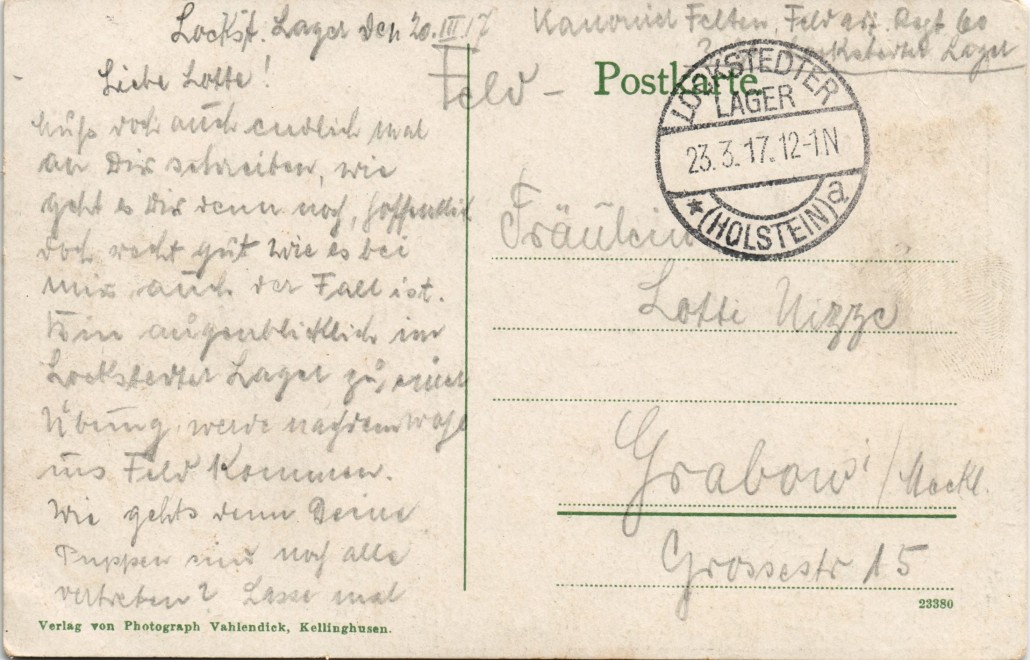 Lockst. Lager den 20.III.17
Liebe Lotte!
Muß doch auch endlich mal
an Dir schreiben, wie
geht es Dir denn noch, hoffentlich
doch recht gut wie es bei
mir auch der Fall ist.
Bin augenblicklich im
Lockstedter Lager zu einer
Übung, werde nachdem wohl
ins Feld kommen.
Wie gehts denn Deine
Puppen sind noch alle
vertreten? Lasse mal
Kanonier Felten, Feld art. Regt 60
Lockstedter Lager
Feld-
Postkarte
LOCKSTEDTER
LAGER
23.3.17.12-1N
* (HOLSTEIN) a
Fräulein
Lotte Nizze
Grabow i/Meckl.
Grossestr 15
23380
Verlag von Photograph Vahlendick, Kellinghusen.